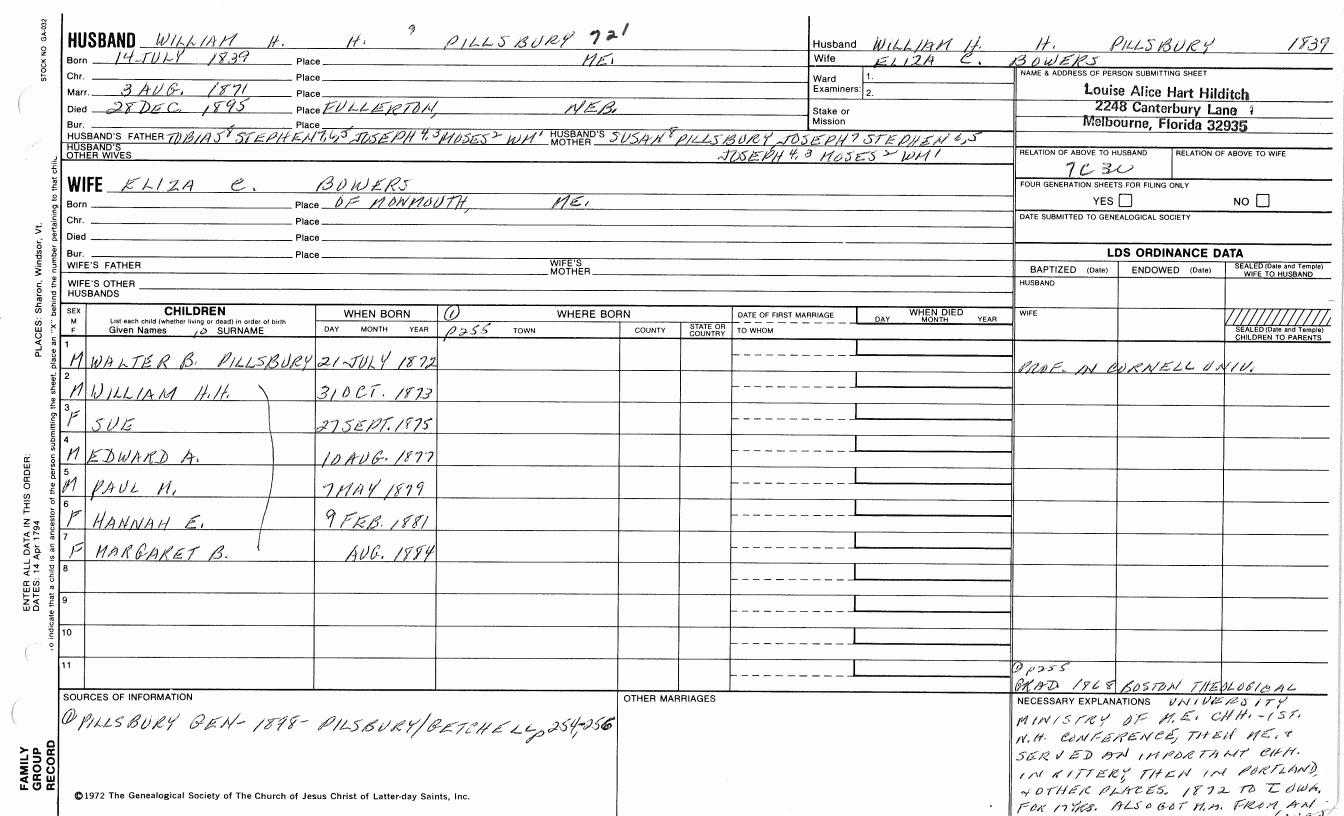 STOCK NO. GA-032
HUSBAND WILLIAM H. H. 9 PILLSBURY 721
Born 14 JULY 1839 Place ME.
Chr. Place
Marr. 3 AUG. 1871 Place
Died 28 DEC. 1895 Place FULLERTON, NEB.
Bur. Place
HUSBAND'S FATHER TOBIAS 8 STEPHEN 7,6,5 JOSEPH 4,3 MOSES 2 WM 1 HUSBAND'S MOTHER SUSAN 8 PILLSBURY JOSEPH 7 STEPHEN 6,5
HUSBAND'S OTHER WIVES JOSEPH 4,3 MOSES 2 WM 1
Husband WILLIAM H. H. PILLSBURY 1839
Wife ELIZA C. BOWERS
Ward Examiners: 1.
2.
Stake or Mission
NAME & ADDRESS OF PERSON SUBMITTING SHEET
Louise Alice Hart Hilditch
2248 Canterbury Lane
Melbourne, Florida 32935
RELATION OF ABOVE TO HUSBAND RELATION OF ABOVE TO WIFE
7C3U
FOUR GENERATION SHEETS FOR FILING ONLY
YES NO
DATE SUBMITTED TO GENEALOGICAL SOCIETY
WIFE ELIZA C. BOWERS
Born Place OF MONMOUTH, ME.
Chr. Place
Died Place
Bur. Place
WIFE'S FATHER WIFE'S MOTHER
WIFE'S OTHER HUSBANDS
LDS ORDINANCE DATA
BAPTIZED (Date) ENDOWED (Date) SEALED (Date and Temple) WIFE TO HUSBAND
HUSBAND
WIFE
SEALED (Date and Temple) CHILDREN TO PARENTS
SEX M F CHILDREN WHEN BORN ① WHERE BORN DATE OF FIRST MARRIAGE WHEN DIED
List each child (whether living or dead) in order of birth
Given Names 10 SURNAME DAY MONTH YEAR P255 TOWN COUNTY STATE OR COUNTRY TO WHOM DAY MONTH YEAR
1 M WALTER B. PILLSBURY 21 JULY 1872 PROF. IN CORNELL UNIV.
2 M WILLIAM H.H. 31 OCT. 1873
3 F SUE 27 SEPT. 1875
4 M EDWARD A. 10 AUG. 1877
5 M PAUL M. 7 MAY 1879
6 F HANNAH E. 9 FEB. 1881
7 F MARGARET B. AUG. 1884
8
9
10
11
① P255
GRAD 1868 BOSTON THEOLOGICAL
SOURCES OF INFORMATION
① PILLSBURY GEN- 1898- PILSBURY/GETCHELL, p 254-256
OTHER MARRIAGES
NECESSARY EXPLANATIONS UNIVERSITY
MINISTRY OF M.E. CHH.-1ST.
N.H. CONFERENCE, THEN ME. &
SERVED AN IMPORTANT CHH.
IN KITTERY, THEN IN PORTLAND,
& OTHER PLACES. 1872 TO IOWA.
FOR 17 YRS. ALSO GOT M.A. FROM AN
©1972 The Genealogical Society of The Church of Jesus Christ of Latter-day Saints, Inc.
ENTER ALL DATA IN THIS ORDER:
PLACES: Sharon, Windsor, Vt.
DATES: 14 Apr 1794
o indicate that a child is an ancestor of the person submitting the sheet, place an "X" behind the number pertaining to that chil
FAMILY
GROUP
RECORD